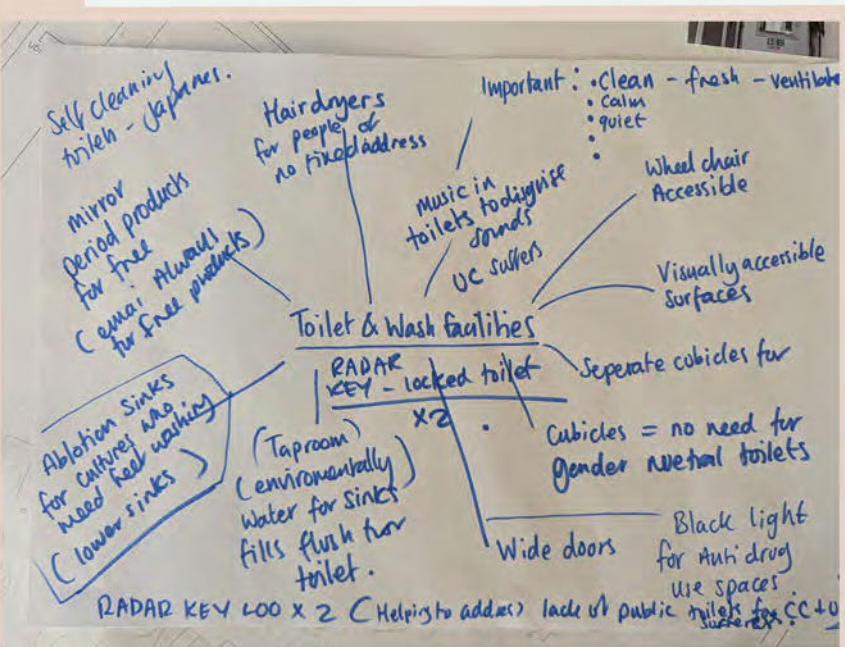 Self cleaning
toilets - Japanes.
Hairdryers
for people of
no fixed address
Important : • Clean - fresh - ventilate
• Calm
• quiet
mirror
period products
for free
( emai Always
for free products )
music in
toilets to disguise
sounds
UC suffers
Wheel chair
Accessible
Visually accessible
surfaces
Toilet & Wash facilities
RADAR
KEY - locked toilet
x2
Seperate cubicles for
Cubicles = no need for
gender nuetral toilets
Ablotion sinks
for cultures who
need feet washing
( lower sinks )
(Taproom)
(enviromentally)
Water for sinks
fills flush for
toilet.
Wide doors
Black light
for Anti drug
use spaces
RADAR KEY LOO x 2 ( Helping to address lack of public toilets for CC + U
sufferers.